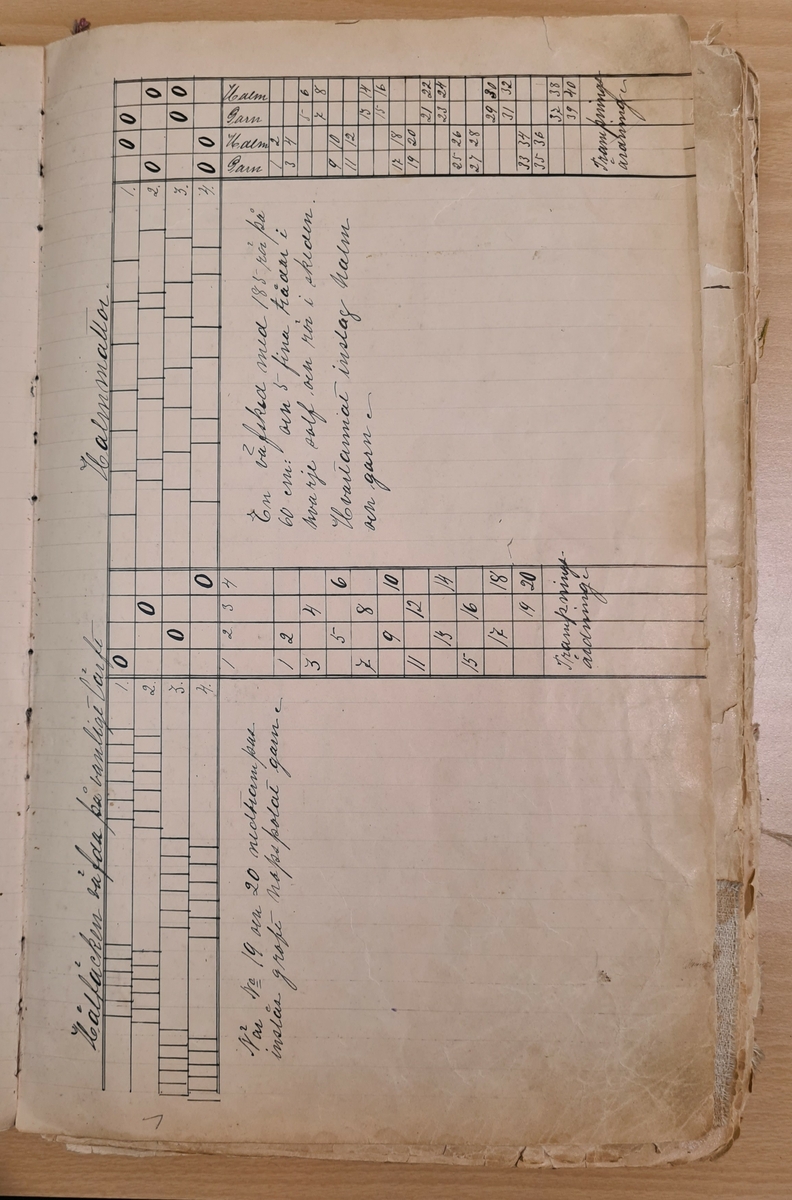 väfda på vanligt lärft
1. 0
2. 0
3. 0
4. 0
1 2 3 4
1 2
3 4
5 6
7 8
9 10
11 12
13 14
15 16
17 18
19 20
Trampnings-
årdning
När No 19 och 20 nedtrampas
inslås groft hopspolat garn
Halmmattor.
1. 0 0
2. 0 0
3. 0 0
4. 0 0
Garn Halm Garn Halm
1 2
3 4
5 6
7 8
9 10
11 12
13 14
15 16
17 18
19 20
21 22
23 24
25 26
27 28
29 30
31 32
33 34
35 36
37 38
39 40
Trampnings-
årdning
En väfsked med 185 rör på
60 cm: och 5 fina trådar i
hvarje solf och rör i skeden.
Hvartannat inslag halm
och garn